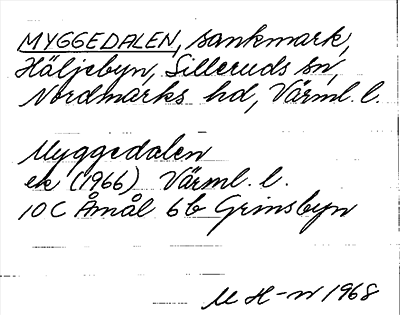 MYGGEDALEN, sankmark,
Häljebyn, Silleruds sn,
Nordmarks hd, Värml. l.
Myggedalen
ek (1966) Värml. l.
10 C Åmål 6b Grinsbyn
M H-n 1968